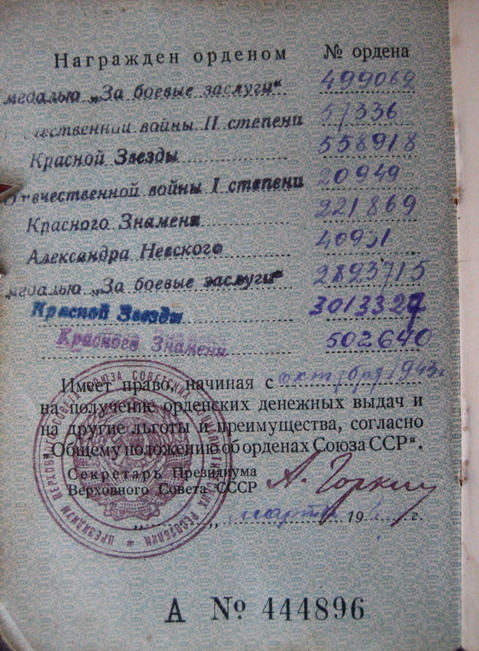 Награжден орденом № ордена
медалью „За боевые заслуги“ 499069
Отечественной войны II степени 57336
Красной Звезды 558918
Отечественной войны I степени 20949
Красного Знамени 221869
Александра Невского 40931
медалью „За боевые заслуги“ 2893715
Красной Звезды 3013327
Красного Знамени 502640
Имеет право, начиная с октября 1943г.
на получение орденских денежных выдач и
на другие льготы и преимущества, согласно
„Общему положению об орденах Союза ССР“.
Секретарь Президиума
Верховного Совета СССР А. Горкин
„ “ марта 19 г.
ПРЕЗИДИУМ ВЕРХОВНОГО СОВЕТА СОЮЗА СОВЕТСКИХ РЕСПУБЛИК
А № 444896